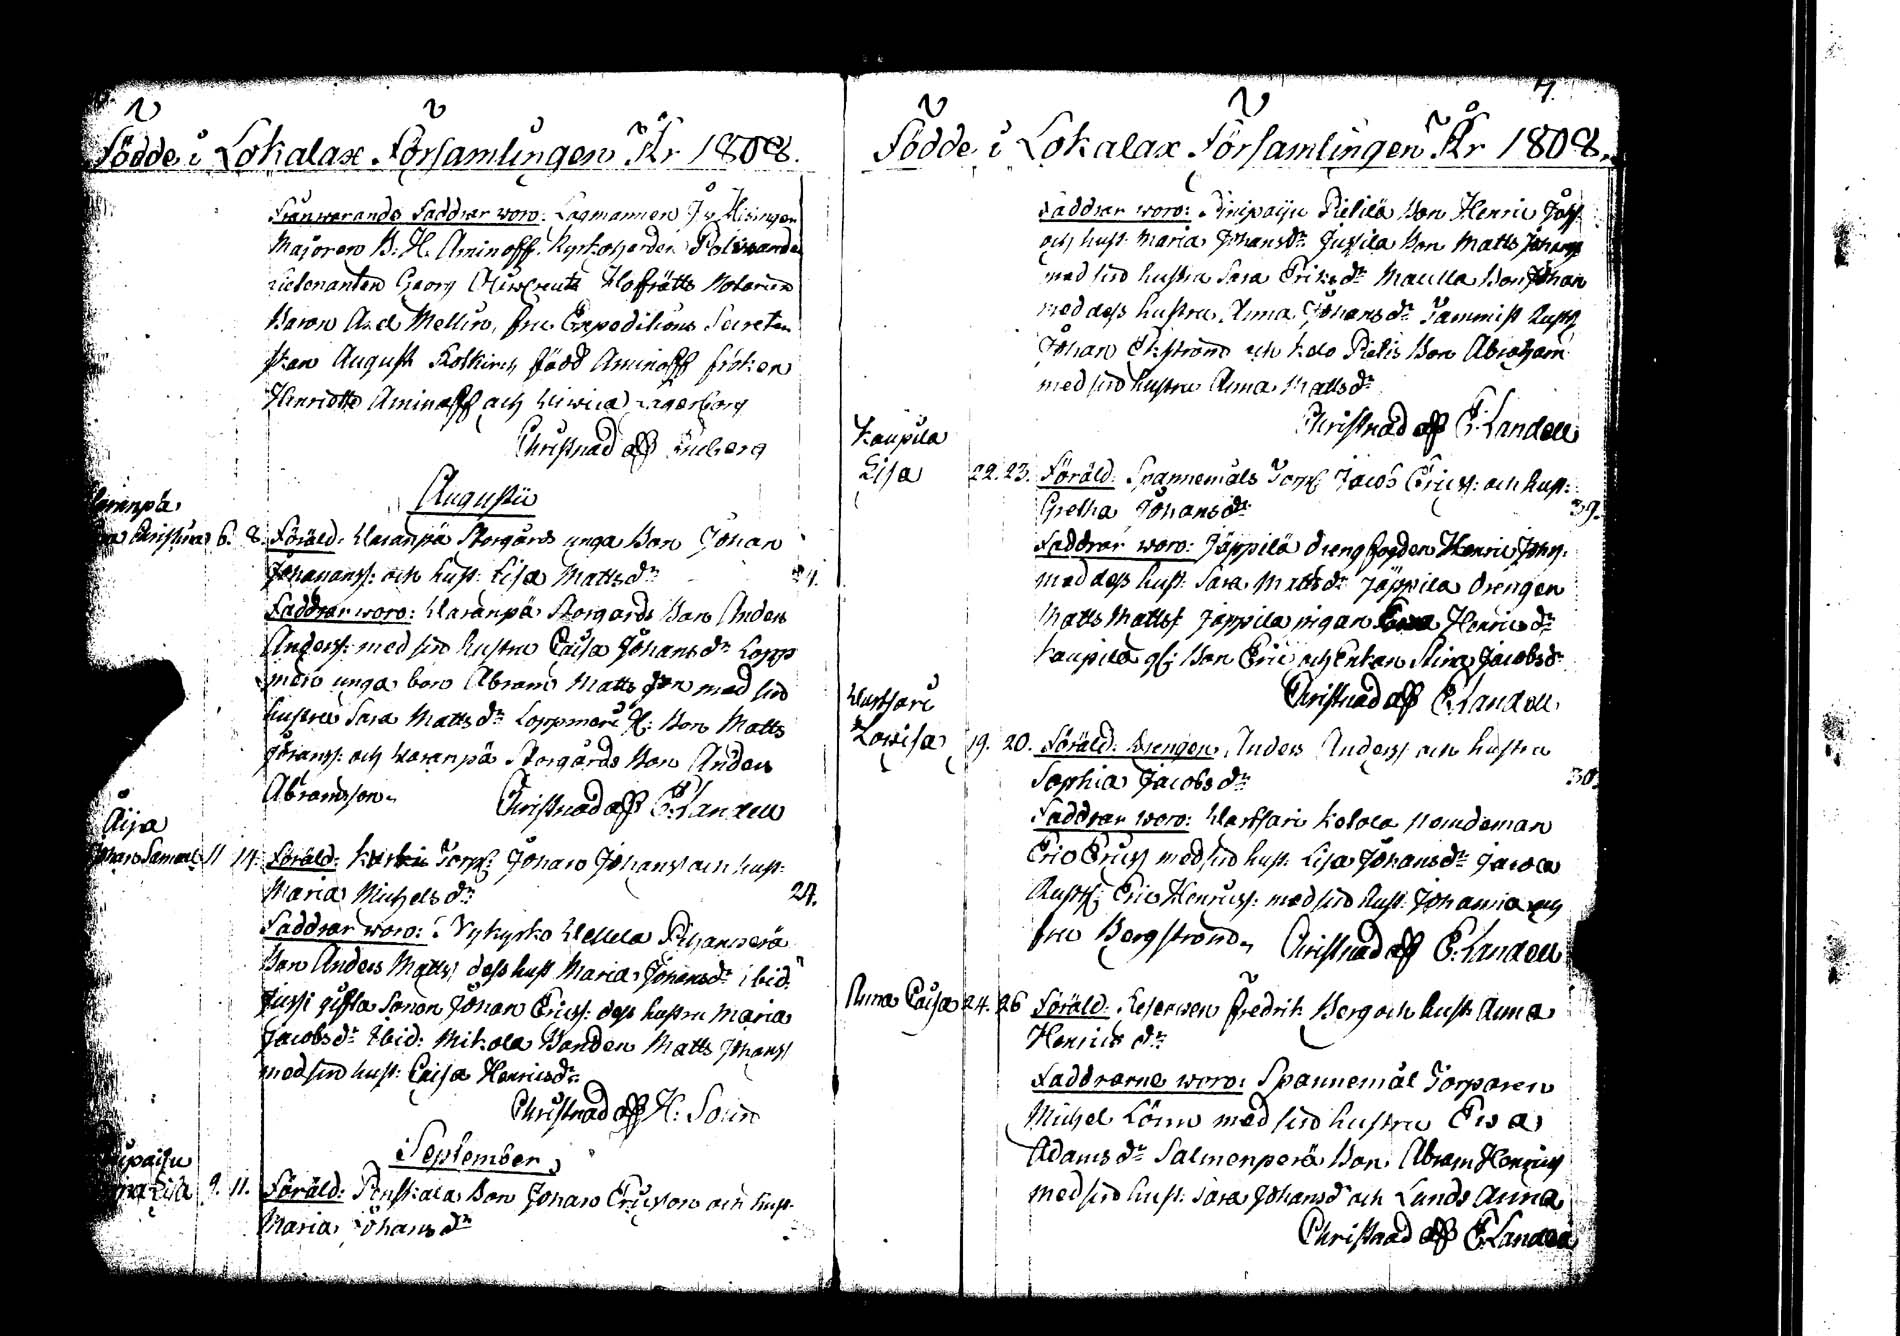 Födde i Lokalax Församlingen År 1808.
Frånwarande Faddrar woro: Lagmannen J v Hisinger
Majoren B. H. Aminoff, Kyrkoherden Polviander
Lieutenanten Georg Notarien
Baron Axel Mellin, fru Expeditions Secreter
skan August född Aminoff fröken
Henriette Aminoff och Lowica Lagerborg
Christnad aff
Augustii
Christina 6. 8. Föräld: Haranpä Storgårds unga Bon Johan
Johanss: och hust: Lisa Matts dr
Faddrar woro: Haranpä Storgårds Bon Anders
Anderss: med sin hustru Caisa Johans dr Lopp
meri unga bon Abram Matts son med sin
hustru Sara Matts dr Loppmeri gl: Bon Matts
Göranss: och Haranpä Storgårds Bon Anders
Abramsson.
Christnad aff E: Landell
Äijä
Johan Samuel 11 14. Föräld: Torp: Johan Johanss och hust:
Maria Michels dr 24.
Faddrar woro: Nykyrko Wellua Pihanperä
Bon Anders Matts: dess hust Maria Johans dr ibid:
Jussi gifta Sonen Johan Ericss: dess hustru Maria
Jacobs dr Ibid: Mikola Bonden Matts Johanss
med sin hust: Caisa Henrics dr
Christnad aff H: Solin
September
Lisa 9. 11. Föräld: Penskala Bon Johan Ericsson och hust:
Maria Johans dr
7.
Födde i Lokalax Församlingen År 1808.
Faddrar woro: Pinipaiju Pietilä Bon Henric Johss
och hust: Maria Johans dr Jussila Bon Matts Johanss
med sin hustru Sara Eriks dr Maulla Bon Johan
med dess hustru Anna Johans dr Tammist Rustß
Johan Ekström och Kelo Pietis Bon Abraham
med sin hustru Anna Matts dr
Christnad aff E: Landell
Kaupila
Lisa 22. 23. Föräld: Spannemåls Torp: Jacob Ericss: och hust:
Gretha Johans dr 39.
Faddrar woro: Jäppilä drengfogden Henric Johss:
med dess hust: Sara Matts dr Jäppila drengen
Matts Mattss Jäppila pigan Ewa Henrics dr
Kaupila gl: Bon Eric och Enkan Stina Jacobs dr
Christnad aff E: Landell
Wartsari
Lowisa 19. 20. Föräld: Drengen Anders Anderss och hustru
Sophia Jacobs dr 30.
Faddrar woro: Wartsari Kolola Nemdeman
Eric Ericss med sin hust: Lisa Johans dr
Rustß: Eric Henricss: med sin hust: Johanna och
fru Bergström.
Christnad aff E: Landell
Anna Caisa 24. 26 Föräld: Fredrik Berg och hust: Anna
Henrics dr
Faddrarne woro: Spannemål Torparen
Michel Lönn med sin hustru Ewa
Adams dr Salmenperä Bon Abram Henricss
med sin hust: Sara Johans dr och Lunds Anna
Christnad aff E: Landell